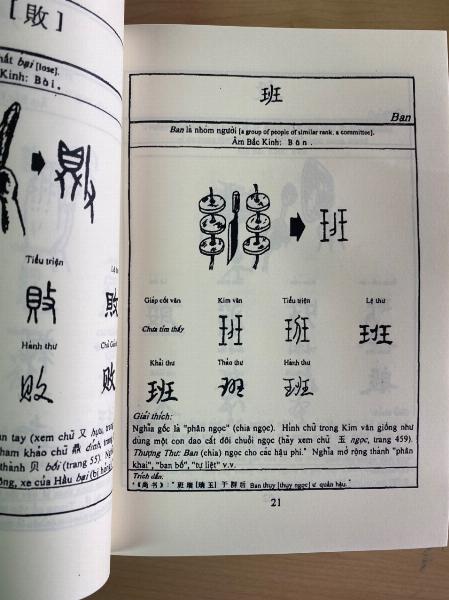 [敗]
hất bại [lose].
Kinh: Bài.
Tiểu triện
敗
敗
Hành thư
败
败
n tay (xem chữ 又 hựu, trang
ham khảo chữ 鼎 đỉnh, trang
thành 贝 bối (trang 55). N
ông, xe của Hầu bại (bị h
班
Ban
Ban là nhóm người [a group of people of similar rank, a committee].
Âm Bắc Kinh: Bān.
班
Giáp cốt văn Kim văn Tiểu triện Lệ thư
Chưa tìm thấy 班 班 班
Khải thư Thảo thư Hành thư
班 班 班
Giải thích:
Nghĩa gốc là "phân ngọc" (chia ngọc). Hình chữ trong Kim văn giống như
dùng một con dao cắt đôi chuỗi ngọc (hãy xem chữ 玉 ngọc, trang 459).
Thượng Thư: Ban (chia) ngọc cho các hậu phi." Nghĩa mở rộng thành "phân
khai", "ban bố", "tự liệt" v.v.
Trích dẫn:
"《尚书》: "班瑞[瑞玉]于群后 Ban thụy [thụy ngọc] ư quần hậu."
21